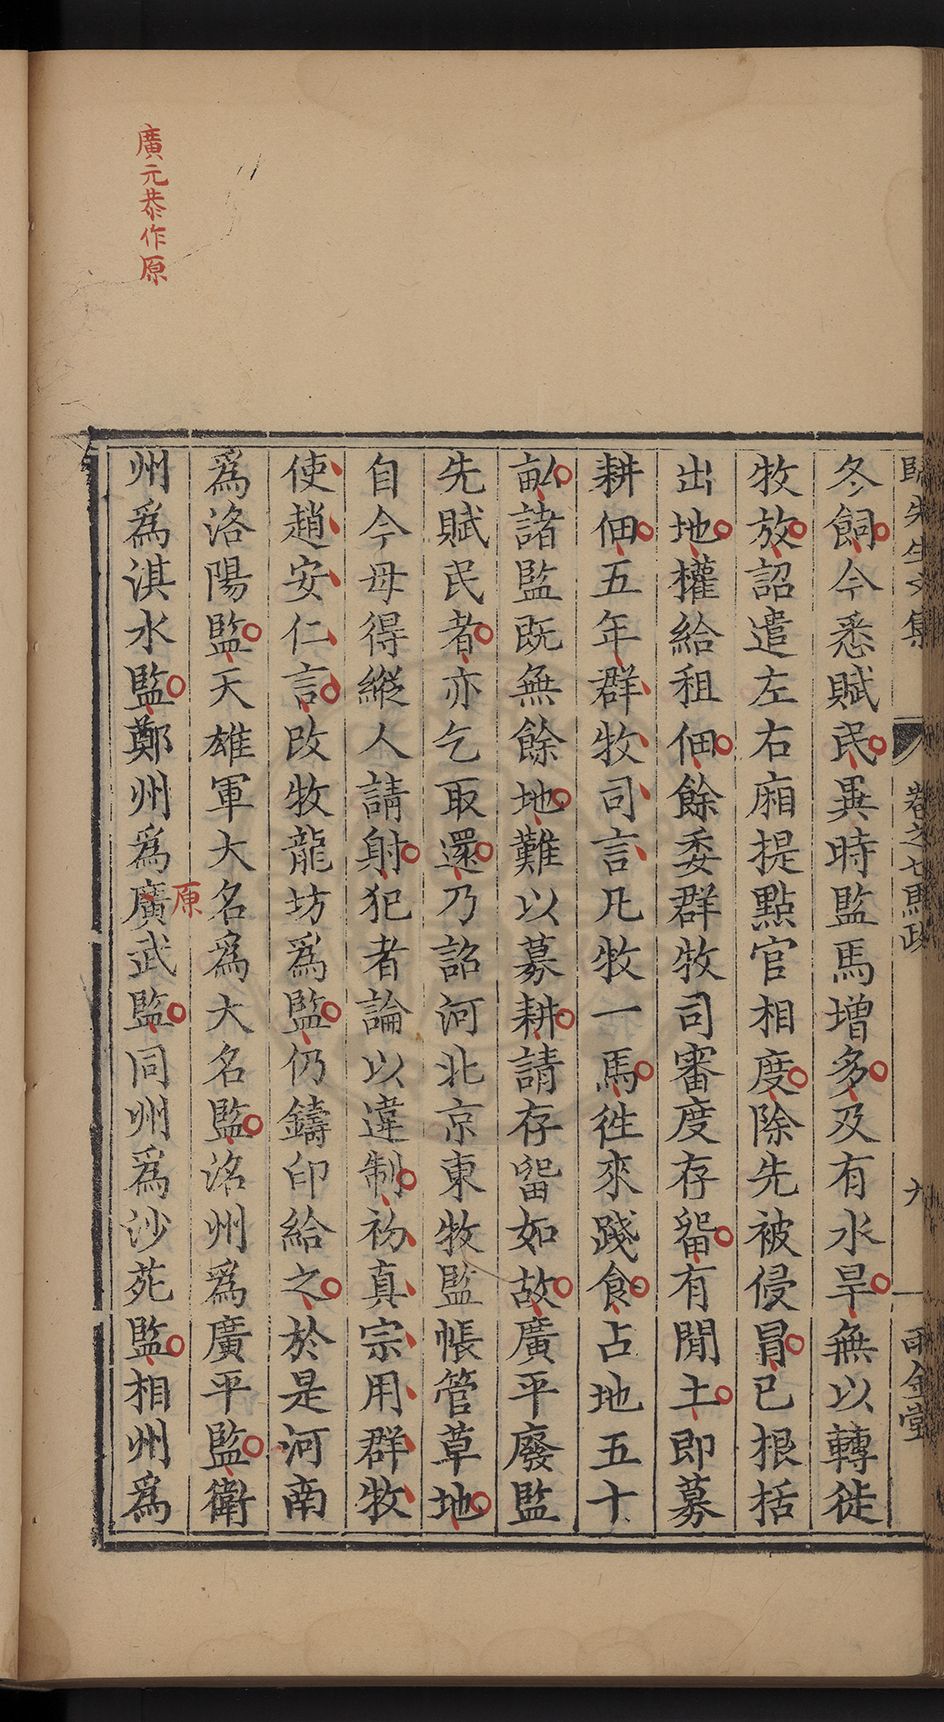 歸先生文集 卷之七馬政 六 雨金堂
冬飼今悉賦民異時監馬增多及有水旱無以轉徙
牧放詔遣左右廂提點官相度除先被侵冒已根括
出地權給租佃餘委群牧司審度存畱有閒土即募
耕佃五年群牧司言凡牧一馬徃來踐食占地五十
畝諸監既無餘地難以募耕請存畱如故廣平廢監
先賦民者亦乞取還乃詔河北京東牧監帳管草地
自今毋得縱人請射犯者論以違制初真宗用群牧
使趙安仁言改牧龍坊爲監仍鑄印給之於是河南
爲洛陽監天雄軍大名爲大名監洺州爲廣平監衛
州爲淇水監鄭州爲廣武監同州爲沙苑監相州爲
原
廣元恭作原